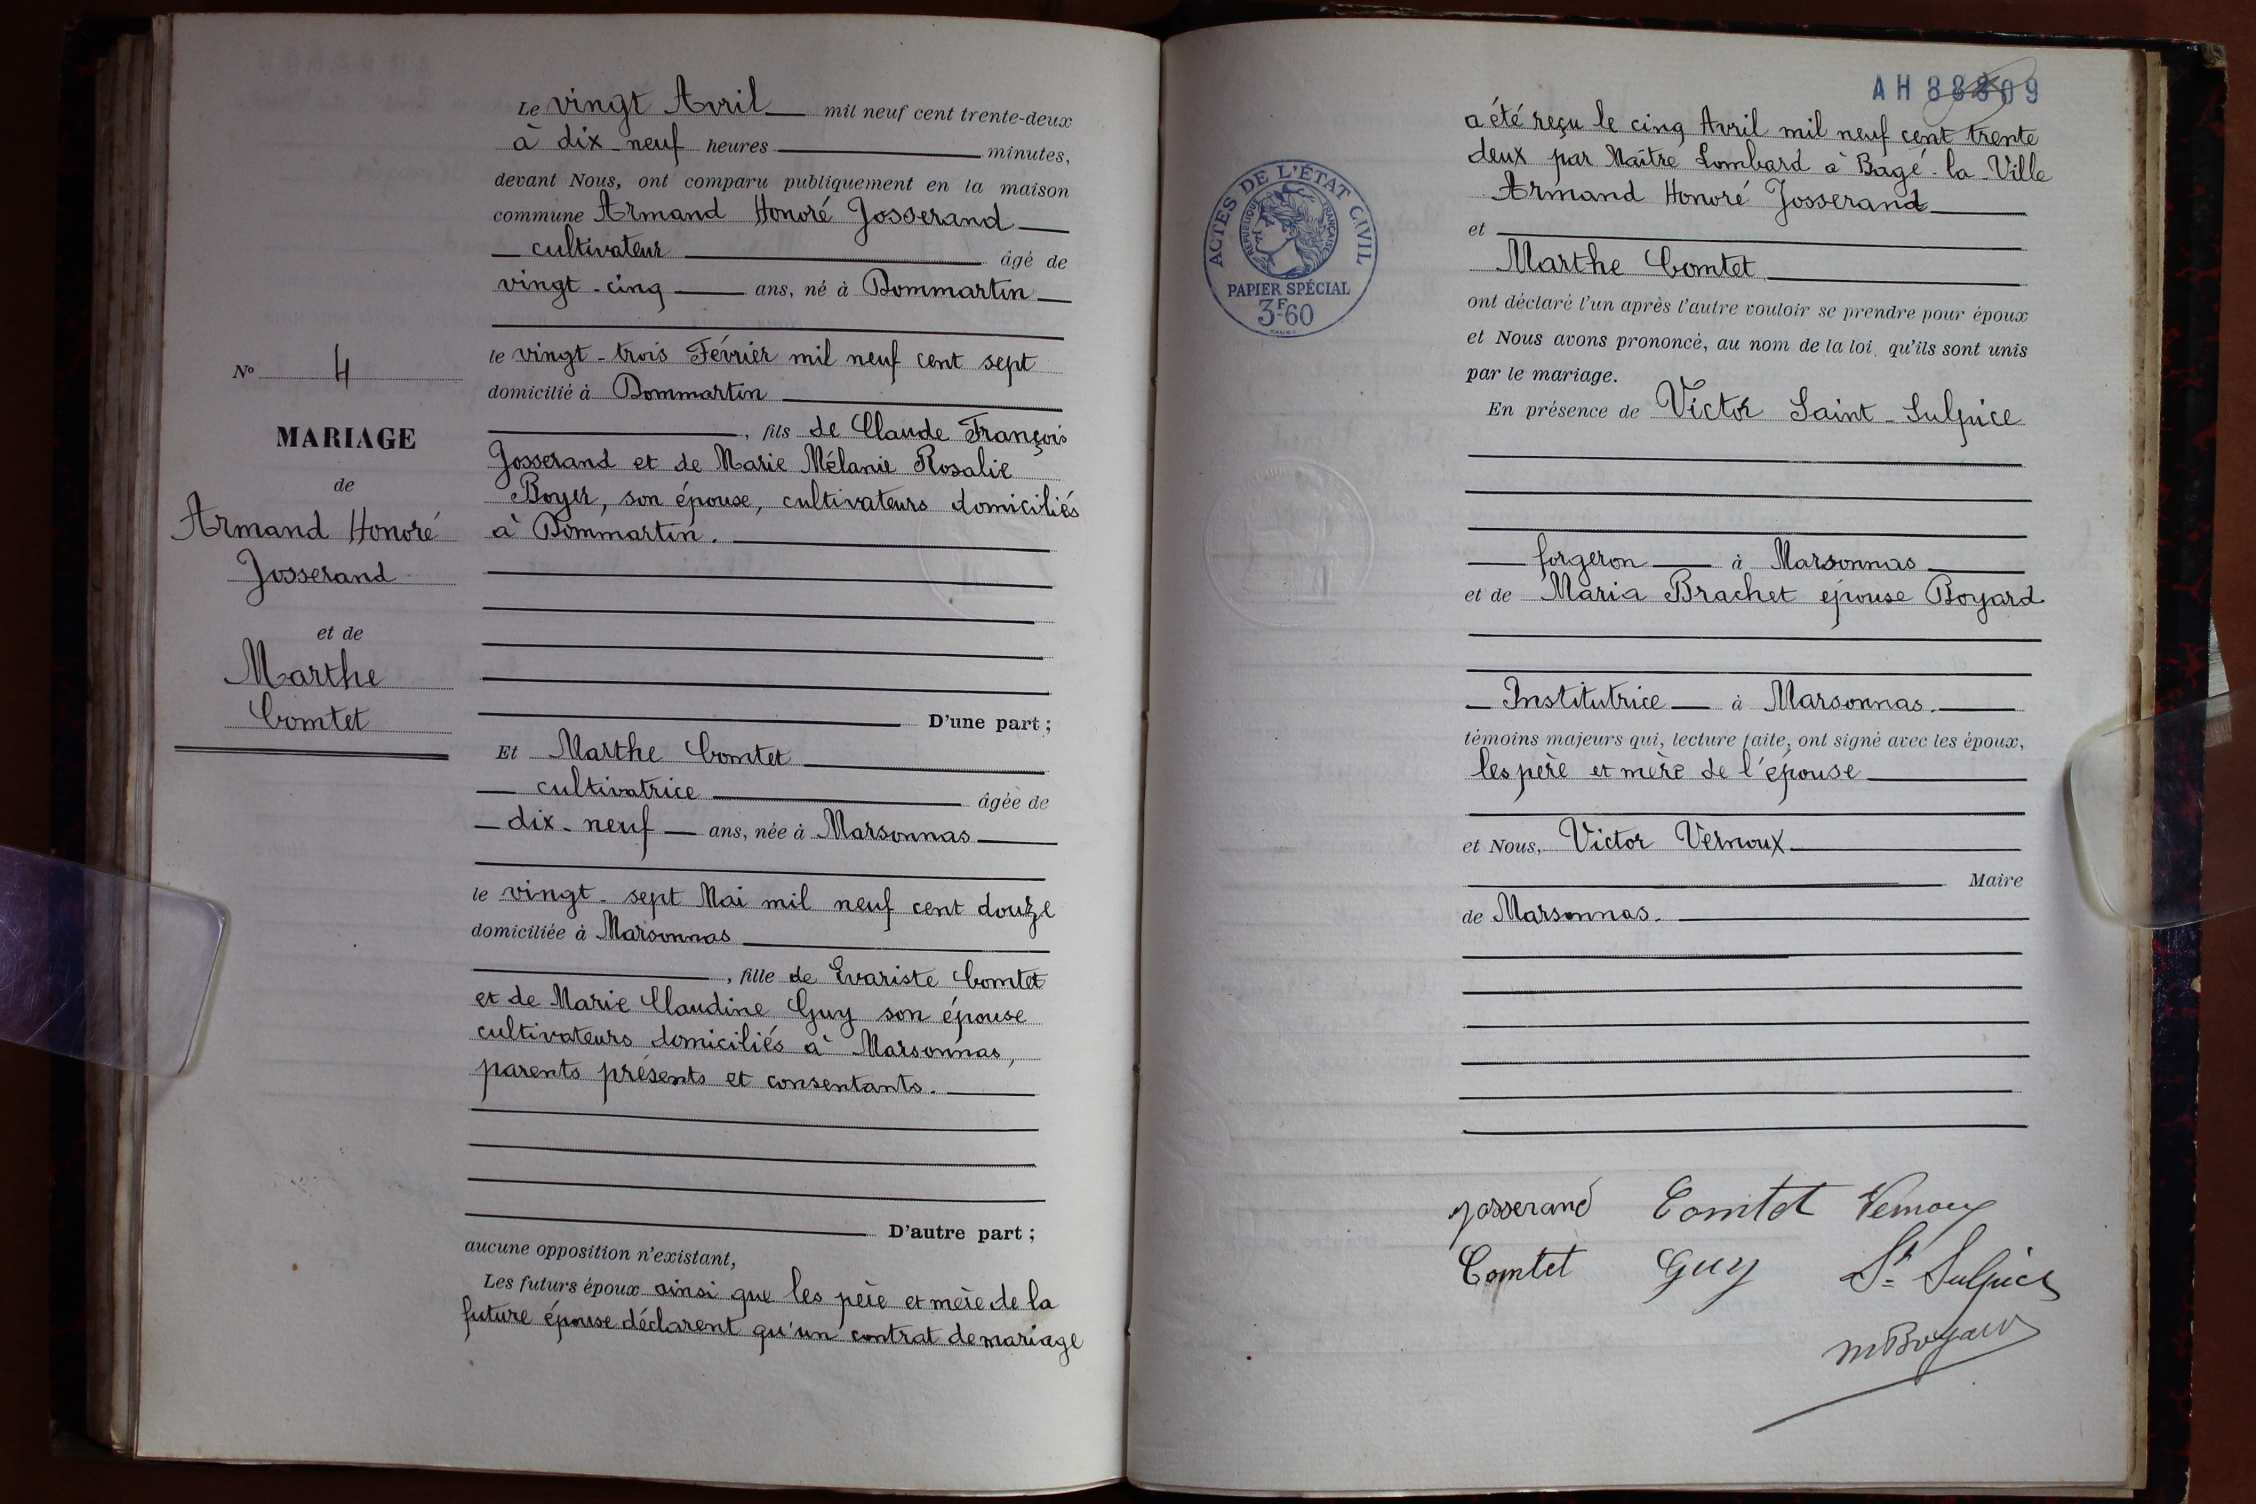 Le vingt Avril mil neuf cent trente-deux
à dix-neuf heures minutes,
devant Nous, ont comparu publiquement en la maison
commune Armand Honoré Josserand
cultivateur âgé de
vingt-cinq ans, né à Dommartin
le vingt-trois Février mil neuf cent sept
domicilié à Dommartin
, fils de Claude François
Josserand et de Marie Mélanie Rosalie
Boyer, son épouse, cultivateurs domiciliés
à Dommartin.
D'une part ;
Et Marthe Comtet
cultivatrice âgée de
dix-neuf ans, née à Marsonnas
le vingt-sept Mai mil neuf cent douze
domiciliée à Marsonnas
, fille de Evariste Comtet
et de Marie Claudine Guy son épouse
cultivateurs domiciliés à Marsonnas,
parents présents et consentants.
D'autre part ;
aucune opposition n'existant,
Les futurs époux ainsi que les père et mère de la
future épouse déclarent qu'un contrat de mariage
No 4
MARIAGE
de
Armand Honoré
Josserand
et de
Marthe
Comtet
AH 88809
a été reçu le cinq Avril mil neuf cent trente
deux par Maître Lombard à Bagé-la-Ville
Armand Honoré Josserand
et
Marthe Comtet
ont déclaré l'un après l'autre vouloir se prendre pour époux
et Nous avons prononcé, au nom de la loi, qu'ils sont unis
par le mariage.
En présence de Victor Saint-Sulpice
forgeron à Marsonnas
et de Maria Brachet épouse Boyard
Institutrice à Marsonnas.
témoins majeurs qui, lecture faite, ont signé avec les époux,
les père et mère de l'épouse
et Nous, Victor Vernoux
Maire
de Marsonnas.
ACTES DE L'ÉTAT CIVIL
RÉPUBLIQUE FRANÇAISE
PAPIER SPÉCIAL
3F60
Josserand Comtet Vernoux
Comtet Guy St Sulpice
M Boyard